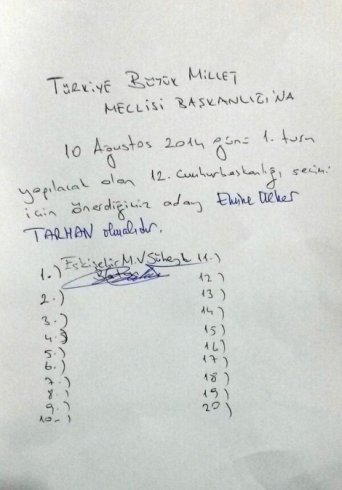 TÜRKİYE BÜYÜK MİLLET
MECLİSİ BAŞKANLIĞINA
10 Ağustos 2014 günü 1. turu
yapılacak olan 12. cumhurbaşkanlığı seçimi
için önerdiğimiz aday Emine Ülker
TARHAN olmalıdır.
1.) Eskişehir M.V Süheyl
Batum
2.)
3.)
4.)
5.)
6.)
7.)
8.)
9.)
10.)
11.)
12)
13)
14)
15)
16)
17)
18)
19)
20)